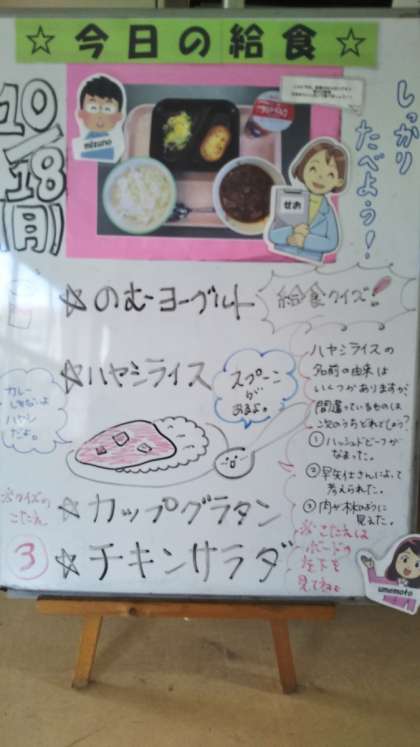 ☆今日の給食☆
10/18(月)
しっかり
たべよう!
mizuno
せお
☆のむヨーグルト
☆ハヤシライス
スプーン
が
あるよ。
カレー
じゃないよ
ハヤシ
だよ。
☆カップグラタン
☆チキンサラダ
※クイズの
こたえ
③
給食クイズ!
ハヤシライスの
名前の由来は
いくつかありますが、
間違っているものは
次のうちどれでしょう?
①ハッシュドビーフが
なまった。
②早矢仕さんによって
考えられた。
③肉が林のように
見えた。
※こたえは
ボードの
左下を
見てねっ
umemoto